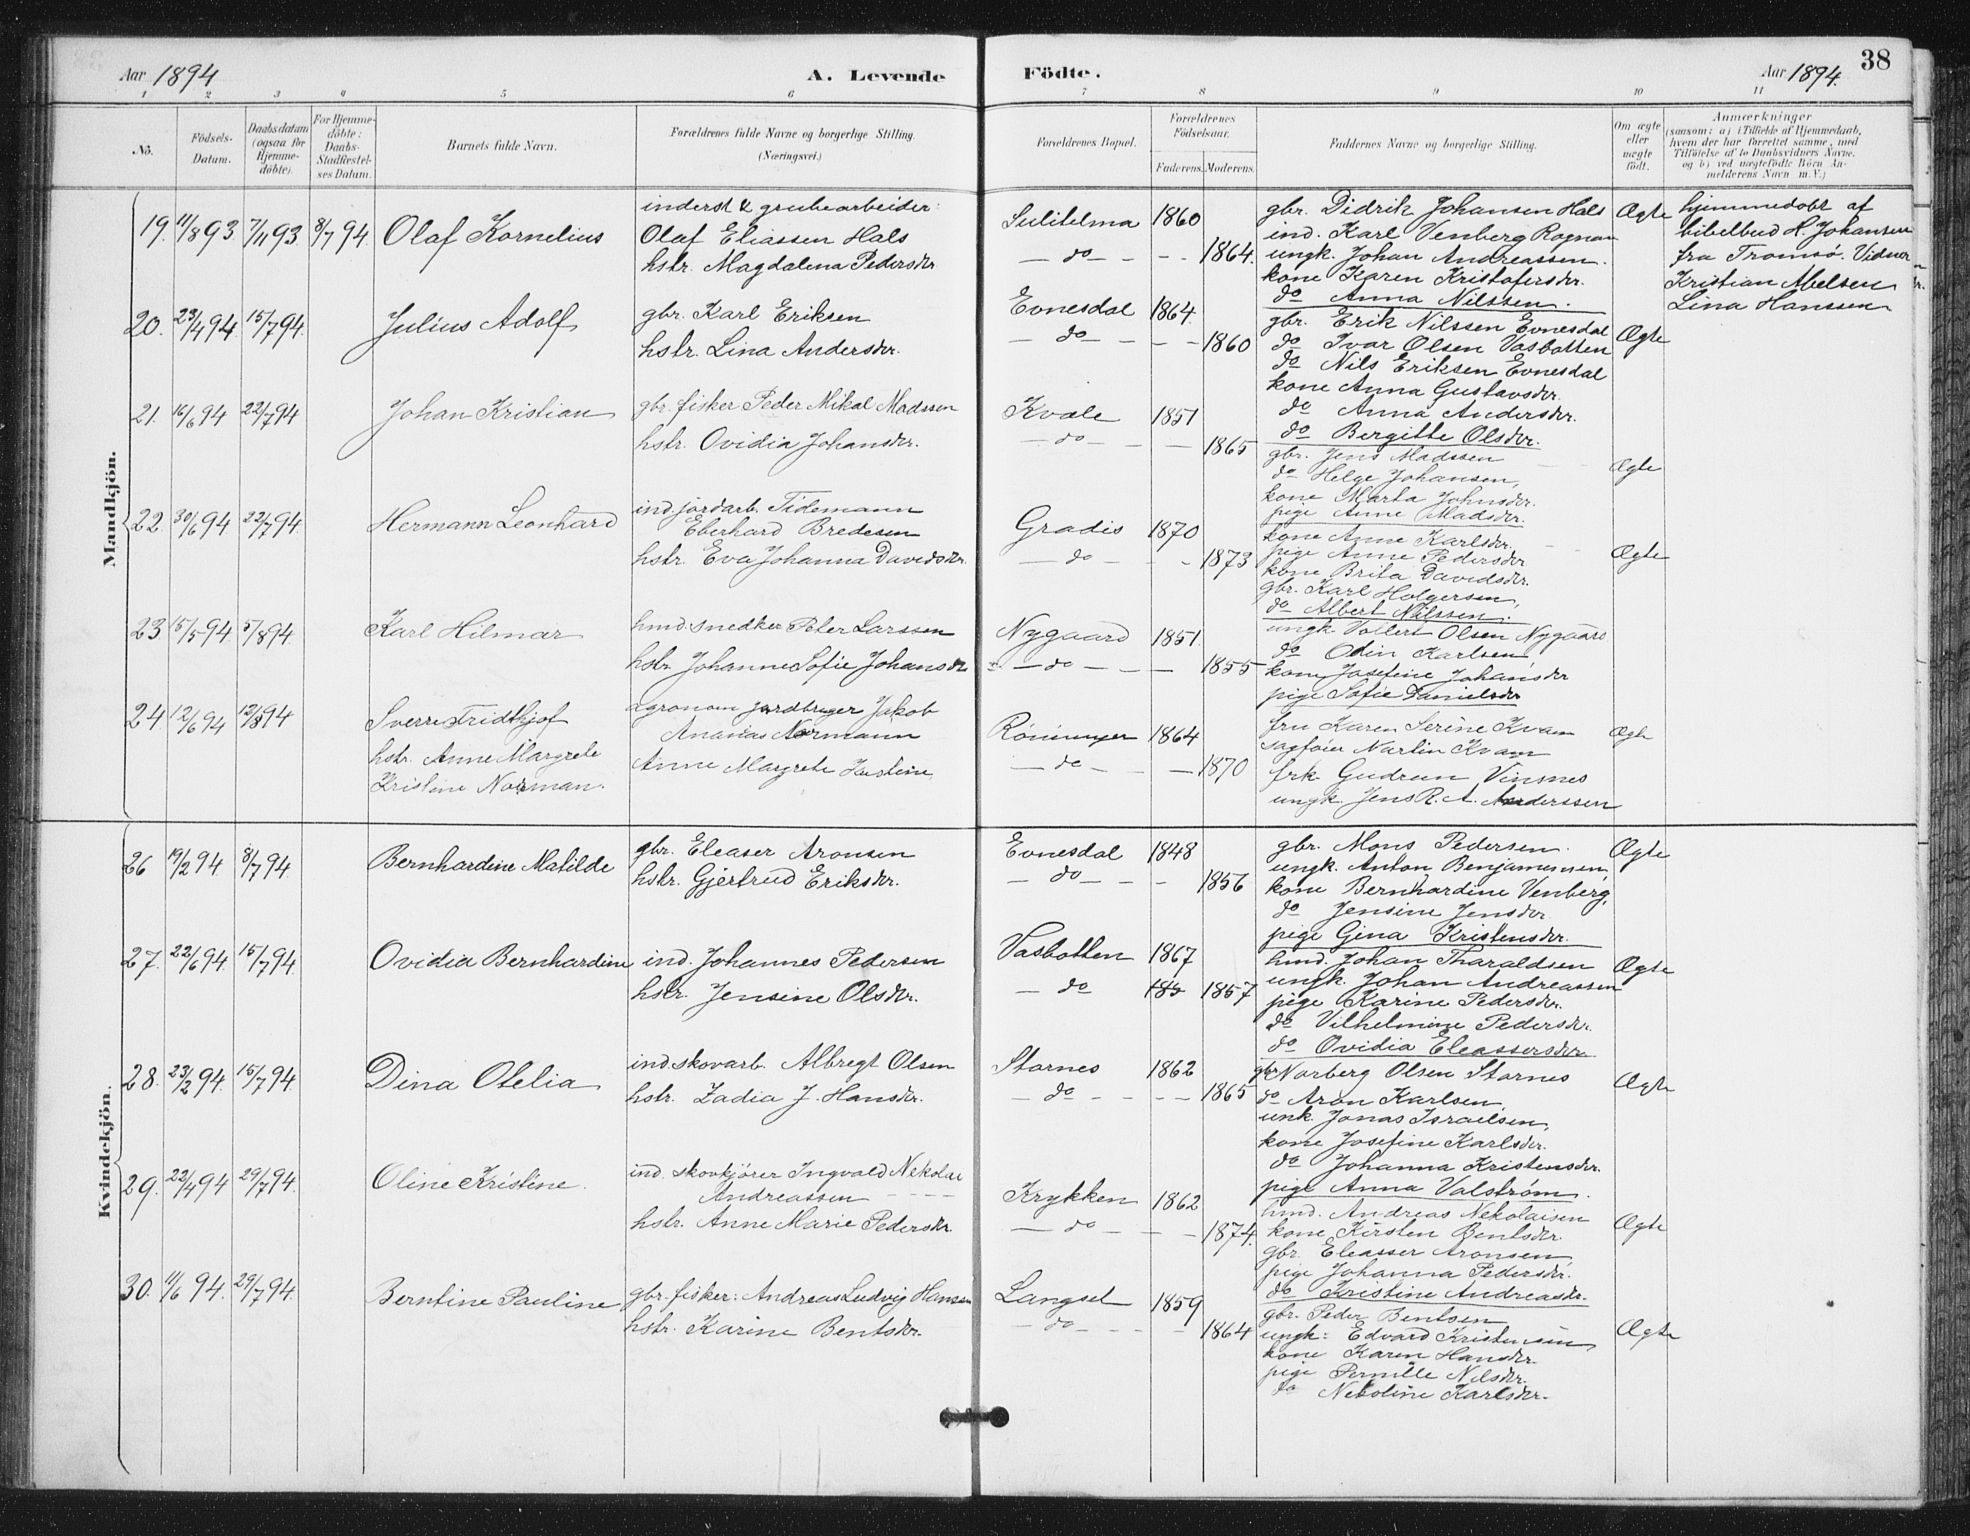 Aar 1894
A. Levende
1 2 3 4 5 6
No.
Födsels-
Datum.
Daabsdatum
(ogsaa for
Hjemme-
döbte).
For Hjemme-
döbte:
Daabs-
Stadfæstel-
ses Datum.
Barnets fulde Navn.
Forældrenes fulde Navne og borgerlige Stilling.
(Næringsvei.)
Mandkjön.
inderst & grubearbeider:
19. 11/8 93 7/11 93 8/7 94 Olaf Kornelius Olaf Eliassen Hals
hstr. Magdalena Pedersdr
20. 23/4 94 15/7 94. Julius Adolf gbr. Karl Eriksen
hstr. Lina Andersdr.
21. 16/6 94 22/7 94 Johan Kristian gbr. fisker Peder Mikal Madssen
hstr. Ovidia Johansdr.
22. 30/6 94 22/7 94. Hermann Leonhard ind. jordarb. Tidemann
Eberhard Bredesen
hstr. Eva Johanna Davidsdr.
23 15/5 94 5/8 94. Karl Hilmar hmd. snedker Peter Larssen
hstr. Johanne Sofie Johansdr
24. 12/6 94 12/8 94 Sverre Fridthjof agronom jordbruger Jakob
Ananias Normann
hstr. Anne Margrete Anne Margrete Kristine
Kristine Norman.
Kvindekjön.
26 19/2 94 8/7 94 Bernhardine Matilde gbr. Eleaser Aronsen
hstr. Gjertrud Eriksdr.
27. 22/6 94. 15/7 94 Ovidia Bernhardine ind. Johannes Pedersen
hstr. Jensine Olsdr.
28. 23/2 94. 15/7 94. Dina Otelia ind. skovarb. Albregt Olsen
hstr. Zadia J. Hansdr.
29. 22/4 94 29/7 94. Oline Kristine. ind. skovkjörer Ingvald Nekolai
Andreassen
hstr. Anne Marie Pedersdr.
30. 11/6 94. 29/7 94. Berntine Pauline gbr. fisker: Andreas Ludvig Hansen
hstr. Karine Bentsdr.
Födte.
Aar 1894.
38
7 8 9 10 11
Forældrenes Bopæl.
Forældrenes
Födselsaar.
Faderens. Moderens.
Faddernes Navne og borgerlige Stilling.
Om ægte
eller
uægte
födt.
Anmærkninger
(saasom: a) i Tilfælde af Hjemmedaab,
hvem der har forrettet samme, med
Tilföielse af to Daabsvidners Navne,
og b) ved uægtefödte Börn An-
melderens Navn m. V.)
Sulitelma 1860 gbr. Didrik Johansen Hals Ægte hjemmedøbt af
ind. Karl Venberg Rognan bibelbud H. Johansen
do 1864. ungk. Johan Andreassen. fra Tromsø. Vidner
kone Karen Kristofersdr. Kristian Melsen
do Anna Nilssen. Lina Hanssen
Evnesdal 1864. gbr. Erik Nilssen Evnesdal
do 1860 do Ivar Olsen Vasbotten Ægte
do Nils Eriksen Evnesdal
kone Anna Gustavsdr.
Kvæle 1851 do Anna Andersdr.
do do Bergitte Olsdr.
1865 gbr. Jens Madssen Ægte
do Helge Johansen,
kone Marta Johnsdr.
pige Anne Madsdr.
Gradis 1870 kone Anne Karlsdr.
do 1873 pige Anne Pedersdr Ægte
kone Brita Davidsdr.
gbr. Karl Holgersen,
do Albert Nilssen.
Nygaard 1851. ungk. Vollert Olsen Nygaard
do Odin Karlsen,
do 1855 kone Josefine Johansdr
pige Sofie Danielsdr
Røniunger 1864 fru Karen Serine Kvam Ægte
sagfører Martin Kvam
do 1870 frk. Gudrun Vinsnes
ungk. Jens R. A. Anderssen
Evnesdal 1848 gbr. Mons Pedersen. Ægte
do ungk. Anton Benjaminsen,
1856 kone Bernhardine Venberg,
do Jensine Jensdr
pige Gina Kristensdr.
Vasbotten 1867 hmd. Johan Tharaldsen Ægte
do 185 1857 ungk. Johan Andreassen
pige Karine Pedersdr.
do Vilhelmine Pedersdr.
do Ovidia Eleassersdr
Stornes 1862 gbr Norberg Olsen Stornes
do 1865 do Aron Karlsen, Ægte
unk. Jonas Israelsen,
kone Josefine Karlsdr.
do Johanna Kristensdr.
pige Anna Valstrøm.
Krykken 1862 hmd. Andreas Nekolaisen
do 1874. kone Kirsten Bentsdr. Ægte
gbr. Eleasser Aronsen,
pige Johanna Pedersdr.
Langset 1859 do Kristine Andreasdr.
do gbr. Peder Bentsen
1864 ungk: Edvard Kristensen Ægte
kone Karen Hansdr.
pige Pernille Nilsdr.
do Nekoline Karlsdr.